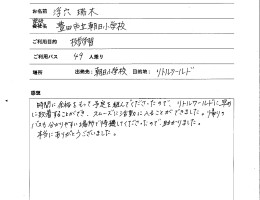 お名前
団体名 豊田市立朝日小学校
ご利用目的 校外学習
ご利用バス 49 人乗り
場所 出発地:朝日小学校 目的地:リトルワールド
感想
時間に余裕をもって予定を組んでくださったので、リトルワールドに早めに
到着することができ、スムーズに
バスも分かりやすい場所で待機してくださったので、助かりました。
本当にありがとうございました。